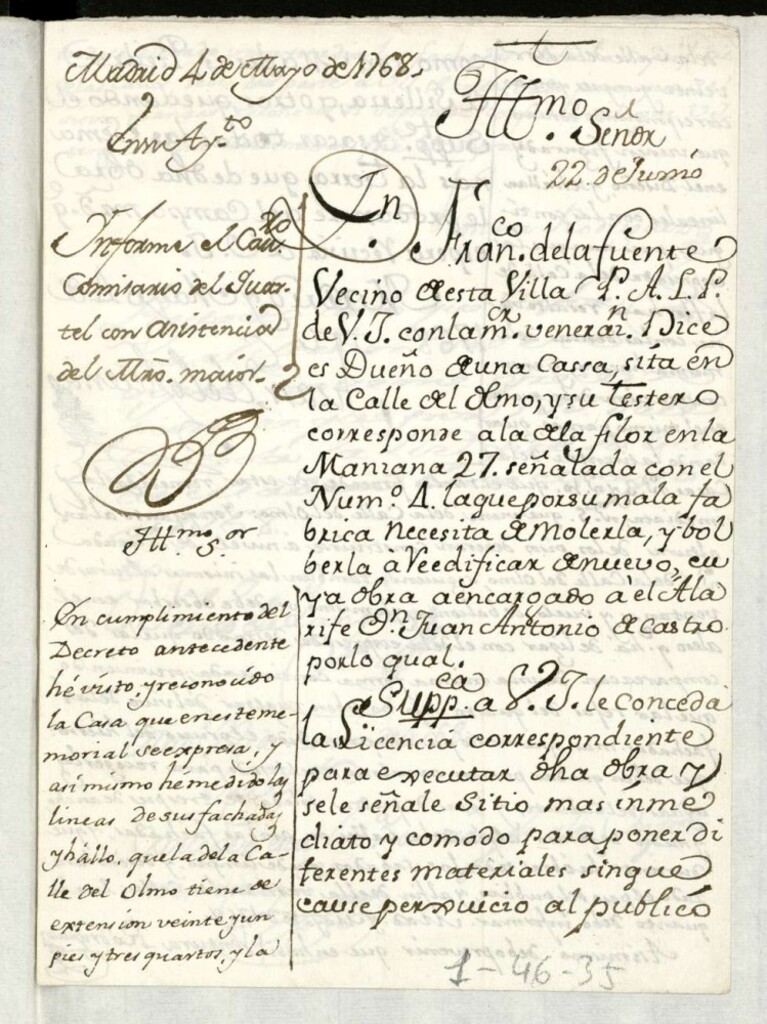 Madrid 4 de Mayo de 1768,
Enm Ay.to
Informe el Cau.ro
Comisario del Quar-
tel con Asistencia
del Mro. maior.
Illmo Señor
22. de Junio
Fran.co de la fuente
Vecino de esta Villa P. A. L. P.
de V. I. con la m.or venerai.n Dice
es Dueño de una Cassa, sita en
la Calle del Olmo, y su Testero
corresponde a la de la flor en la
Manzana 27. señalada con el
Num.o 4. la que por su mala fa
brica necesita demolerla, y bol
berla à Reedificar de nuevo, cu
ya obra a encargado à el Ala
rife D.n Juan Antonio de Castro
por lo qual.
Supp.ca a V. I. le Conceda
la Licencia correspondiente
para executar dha obra y
se le señale Sitio mas ínme
diato y comodo para poner di
ferentes materiales sin que
cause perxuicio al publicó
Illmo s.or
En cumplimiento del
Decreto antecedente
hé visto, y reconocido
la Casa que en este me-
morial se expresa, y
asi mismo hé medido las
lineas de sus fachadas
y hallo, que la de la Ca-
lle del Olmo tiene de
extension veinte y un
pies y tres quartos, y la
1-46-35